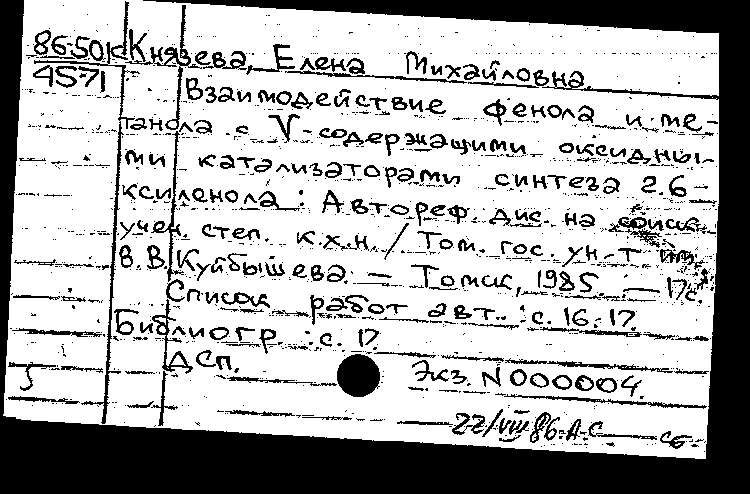 86-501d Князева, Елена Михайловна.
4571
Взаимодействие фенола и ме-
танола с V-содержащими оксидны-
ми катализаторами синтеза 2.6-
ксиленола : Автореф. дис. на соиск.
учен. степ. к.х.н. / Том. гос. ун-т им.
В.В. Куйбышева. — Томск, 1985. — 17с.
Список работ авт.: с. 16-17.
Библиогр.: с. 17.
ДСП.
Экз. N 000004.
22/VIII 86. А-С